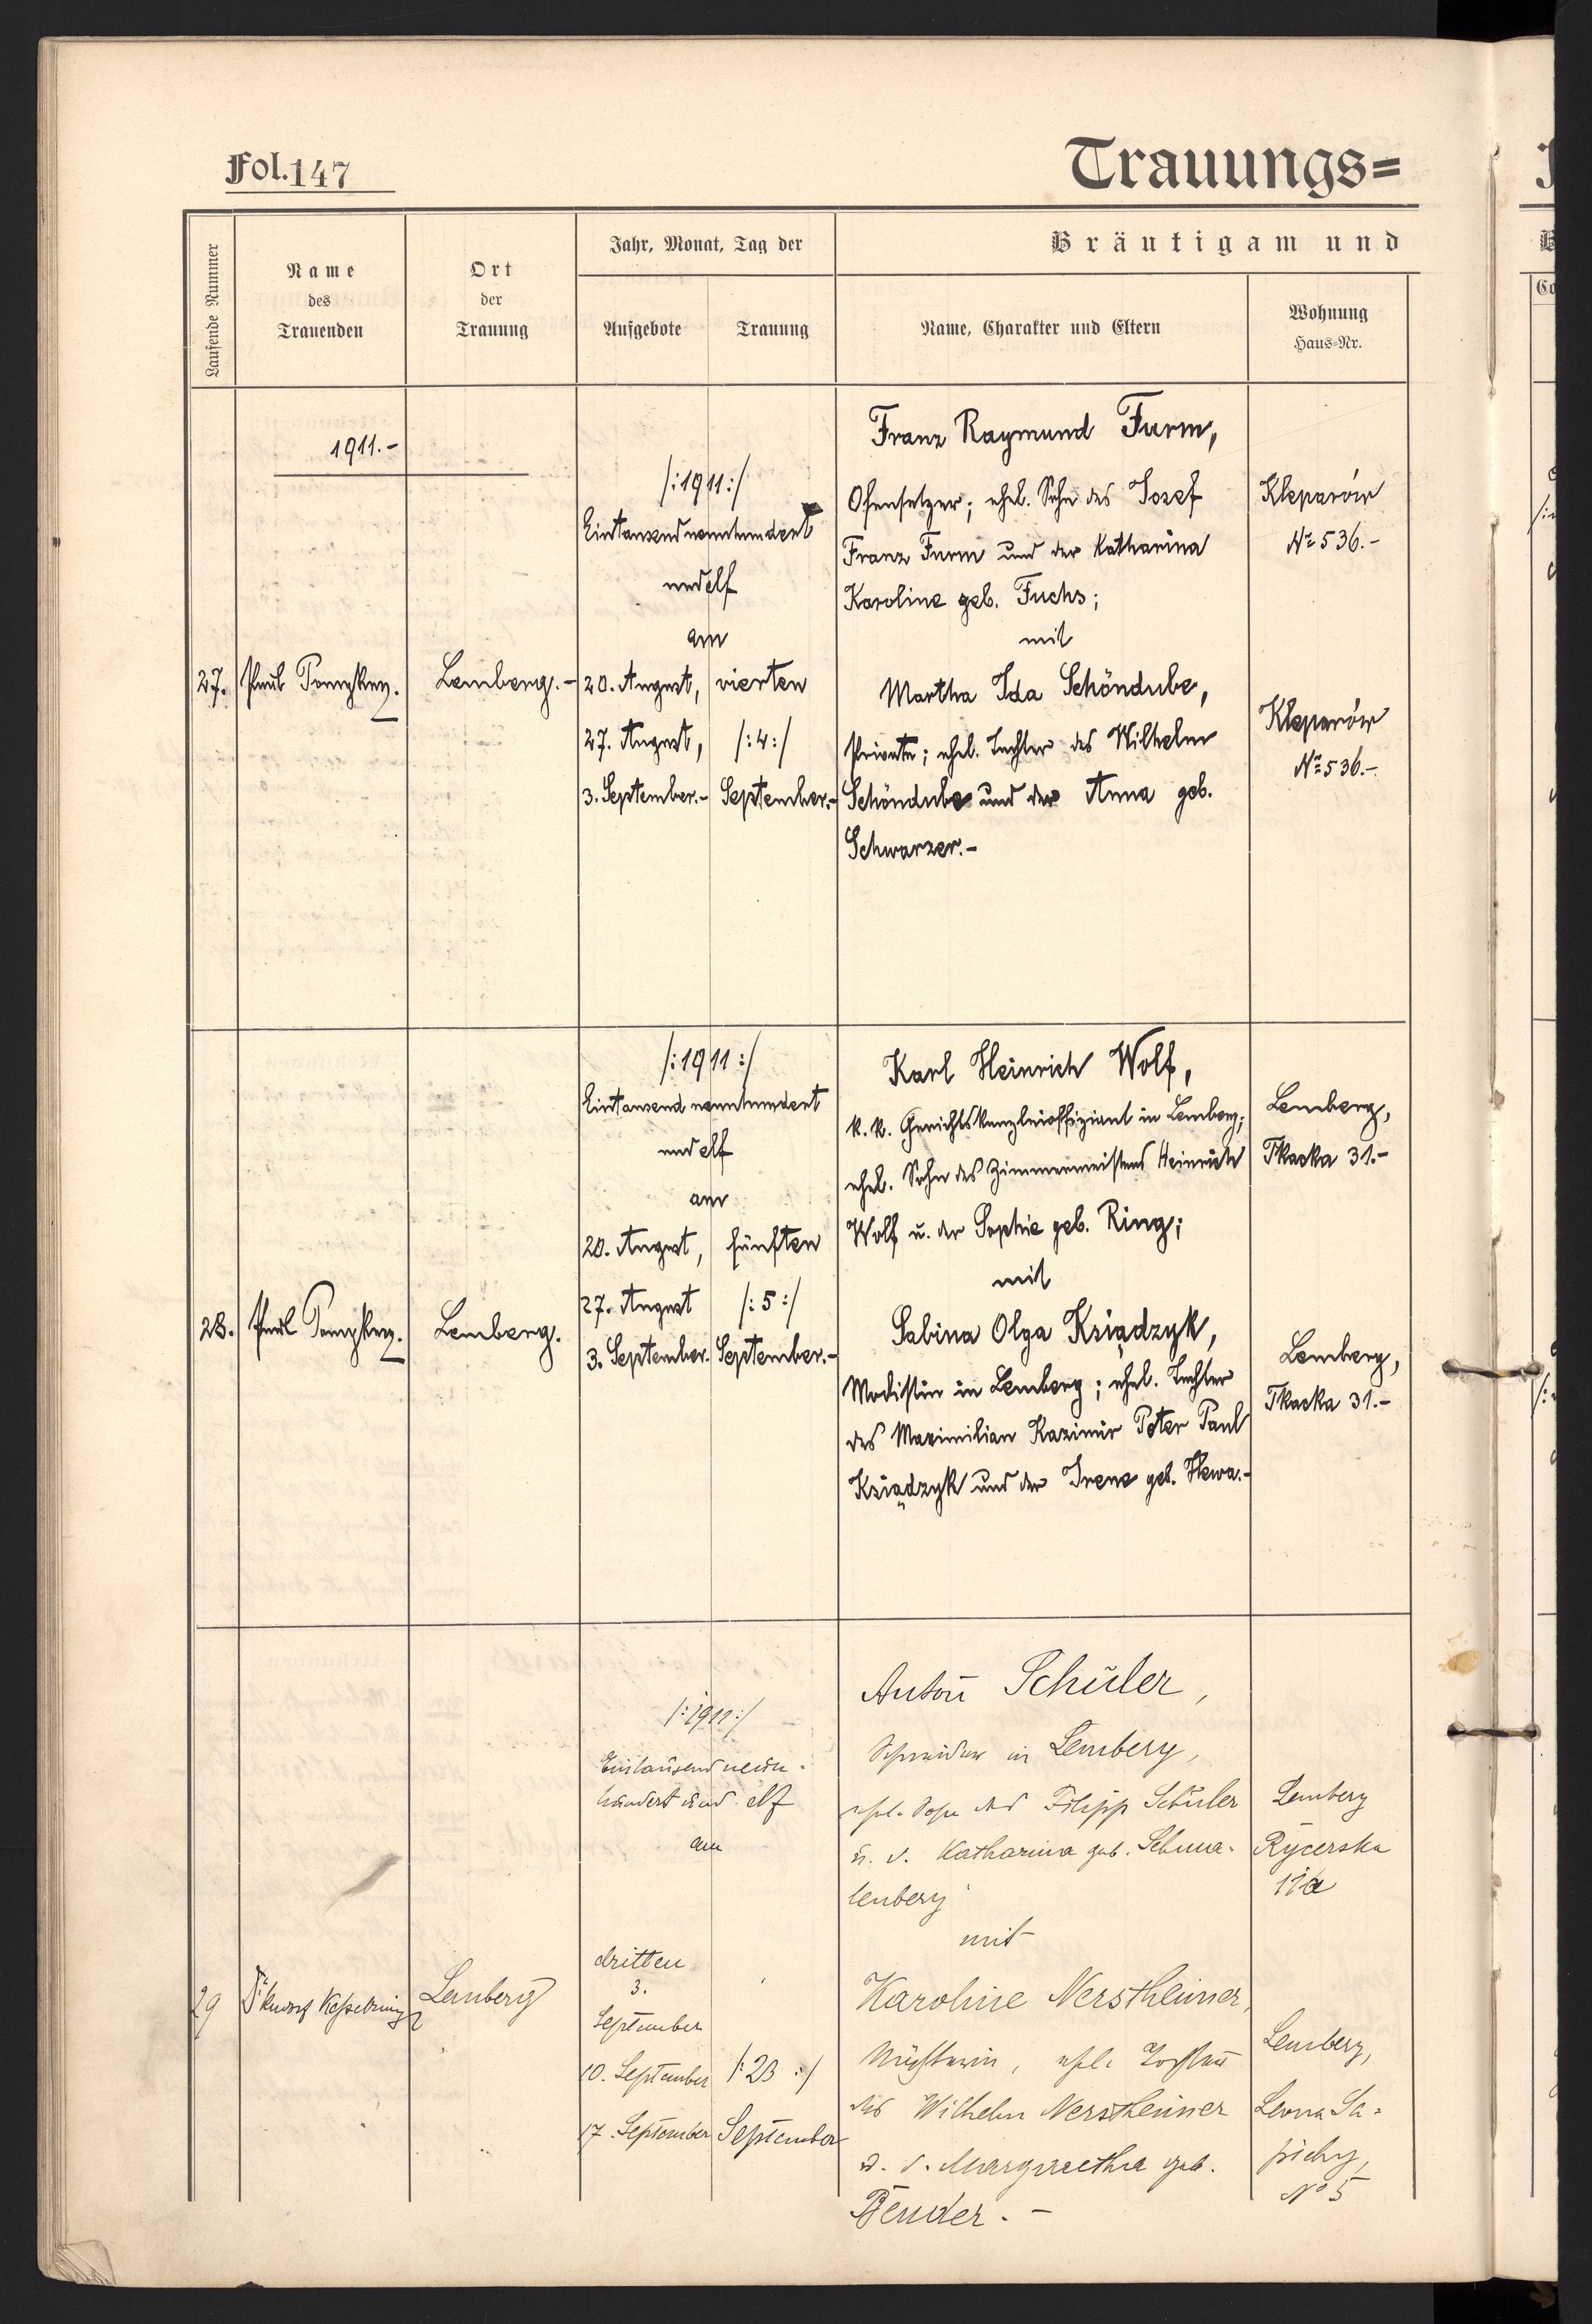 Fol. 147
Trauungs=
Laufende Nummer
Name
des
Trauenden
Ort
der
Trauung
Jahr, Monat, Tag der
Aufgebote
Trauung
Bräutigam und
Name, Charakter und Eltern
Wohnung
Haus-Nr.
1911.-
27.
Paul
Lemberg.-
/:1911:/
Eintausendneunhundert
undelf
am
20. August,
27. August,
3. September.-
vierten
/:4:/
September.-
Franz Raymund Furm,
Ofensetzer; ehel. Sohn des Josef
Franz Furm und der Katharina
Karoline geb. Fuchs;
mit
Martha Ida Schöndube,
Private; ehel. Tochter des Wilhelm
Schöndube und der Anna geb.
Schwarzer.-
Kleparów
No 536.-
Kleparów
No 536.-
28.
Paul
Lemberg.
/:1911:/
Eintausend neunhundert
und elf
am
20. August,
27. August
3. September.
fünften
/:5:/
September.-
Karl Heinrich Wolf,
k. k. Gerichtskanzleioffiziant in Lemberg;
ehel. Sohn des Zimmermeisters Heinrich
Wolf u. der Sophie geb. Ring;
mit
Sabina Olga Książyk,
Modistin in Lemberg; ehel. Tochter
des Maximilian Kazimir Peter Paul
Ksiądzyk und der Irene geb. Hewa.-
Lemberg,
Tkacka 31.-
Lemberg,
Tkacka 31.-
29
Kesselring
Lemberg
/:1911:/
Eintausend neun-
hundert und elf
am
dritten
3.
September
10. September
17. September
/:23:/
September
Anton Schüler,
Schneider in Lemberg,
ehel. Sohn des Filipp Schüler
u. d. Katharina geb. Schma-
lenberg
mit
Karoline Nerstheimer,
ehel. Tochter
des Wilhelm Nerstheimer
u. d. Margaretha geb.
Bender.-
Lemberg
Rycerska
11a
Lemberg,
Leona Sa-
piehy,
No 5